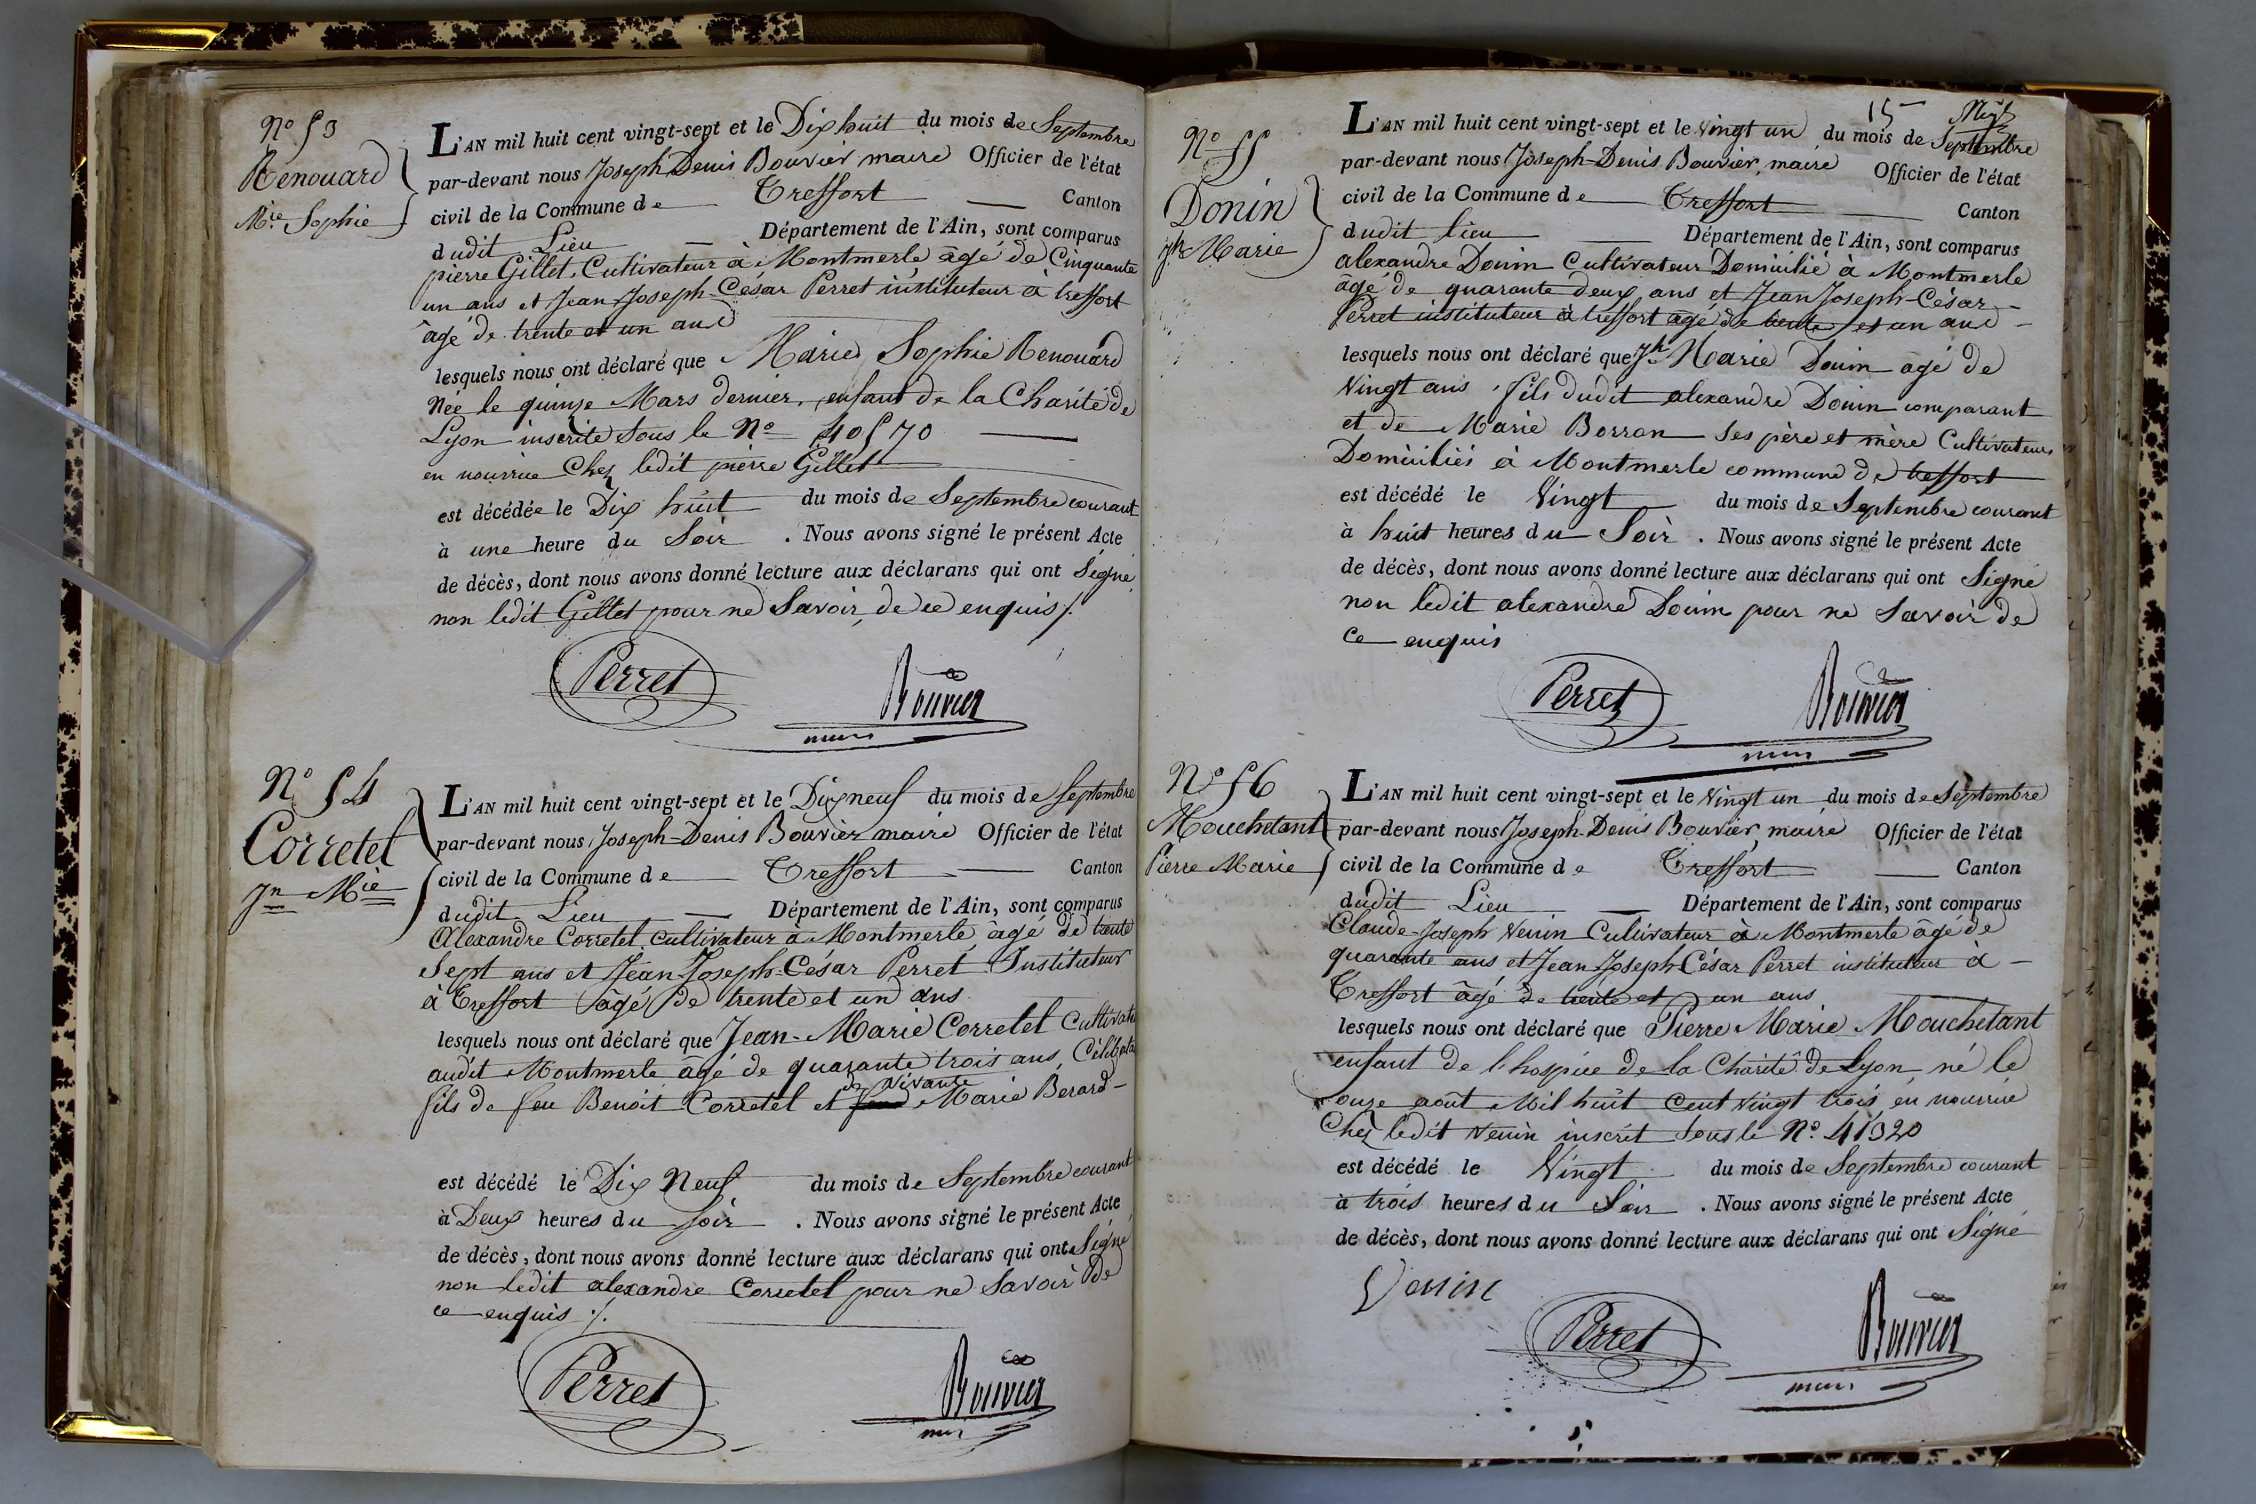 N° 53
Renouard
Mie Sophie
L'AN mil huit cent vingt-sept et le Dix huit du mois de Septembre
par-devant nous Joseph Denis Bouvier maire Officier de l'état
civil de la Commune de Treffort Canton
dudit Lieu Département de l'Ain, sont comparus
pierre Gillet, Cultivateur à Montmerle âgé de Cinquante
un ans et Jean Joseph-César Perret instituteur à treffort
âgé de trente et un ans
lesquels nous ont déclaré que Marie Sophie Renouard
Née le quinze Mars dernier, enfant de la Charité de
Lyon inscrite sous le N° 40570
en nourrice chez ledit pierre Gillet
est décédée le Dix huit du mois de Septembre courant
à une heure du Soir. Nous avons signé le présent Acte
de décès, dont nous avons donné lecture aux déclarans qui ont Signé
non ledit Gillet pour ne Savoir, de ce enquis ./.
Perret
Bouvier
maire
N° 54
Corretel
Jn Mie
L'AN mil huit cent vingt-sept et le Dix neuf du mois de Septembre
par-devant nous Joseph-Denis Bouvier maire Officier de l'état
civil de la Commune de Treffort Canton
dudit Lieu Département de l'Ain, sont comparus
Alexandre Corretel cultivateur à Montmerle âgé de trente
Sept ans et Jean Joseph-César Perret Instituteur
à Treffort âgé de trente et un ans
lesquels nous ont déclaré que Jean-Marie Corretel Cultivate
audit Montmerle âgé de quarante trois ans, Célibata
fils de feu Benoit Corretel et de vivante Marie Berard-
est décédé le Dix Neuf du mois de Septembre courant
à Deux heures du soir. Nous avons signé le présent Acte
de décès, dont nous avons donné lecture aux déclarans qui ont Signé
non ledit alexandre Corretel pour ne Savoir de
ce enquis ./.
Perret
Bouvier
maire
15
N° 55
Donin
Jh Marie
L'AN mil huit cent vingt-sept et le vingt un du mois de Septembre
par-devant nous Joseph-Denis Bouvier, maire Officier de l'état
civil de la Commune de Treffort Canton
dudit lieu Département de l'Ain, sont comparus
alexandre Donin Cultivateur Domicilié à Montmerle
âgé de quarante deux ans et Jean Joseph-César
Perret instituteur à treffort âgé de trente et un ans
lesquels nous ont déclaré que Jh Marie Donin agé de
vingt ans, fils dudit alexandre Donin comparant
et de Marie Borron ses père et mère Cultivateurs
Domiciliés à Montmerle commune de treffort
est décédé le Vingt du mois de Septembre courant
à huit heures du Soir. Nous avons signé le présent Acte
de décès, dont nous avons donné lecture aux déclarans qui ont Signé
non ledit alexandre Donin pour ne Savoir de
ce enquis
Perret
Bouvier
maire
N° 56
Mouchetant
Pierre Marie
L'AN mil huit cent vingt-sept et le vingt un du mois de Septembre
par-devant nous Joseph-Denis Bouvier, maire Officier de l'état
civil de la Commune de Treffort Canton
dudit Lieu Département de l'Ain, sont comparus
Claude-Joseph Venin Cultivateur à Montmerle âgé de
quarante ans et Jean Joseph César Perret instituteur à
Treffort âgé de trente et un ans
lesquels nous ont déclaré que Pierre Marie Mouchetant
enfant de l'hospice de la Charité de Lyon né le
onze août Mil huit Cent vingt trois en nourrice
Chez ledit Venin inscrit sous le N° 41320
est décédé le Vingt du mois de Septembre courant
à trois heures du Soir. Nous avons signé le présent Acte
de décès, dont nous avons donné lecture aux déclarans qui ont Signé
Venin
Perret
Bouvier
maire